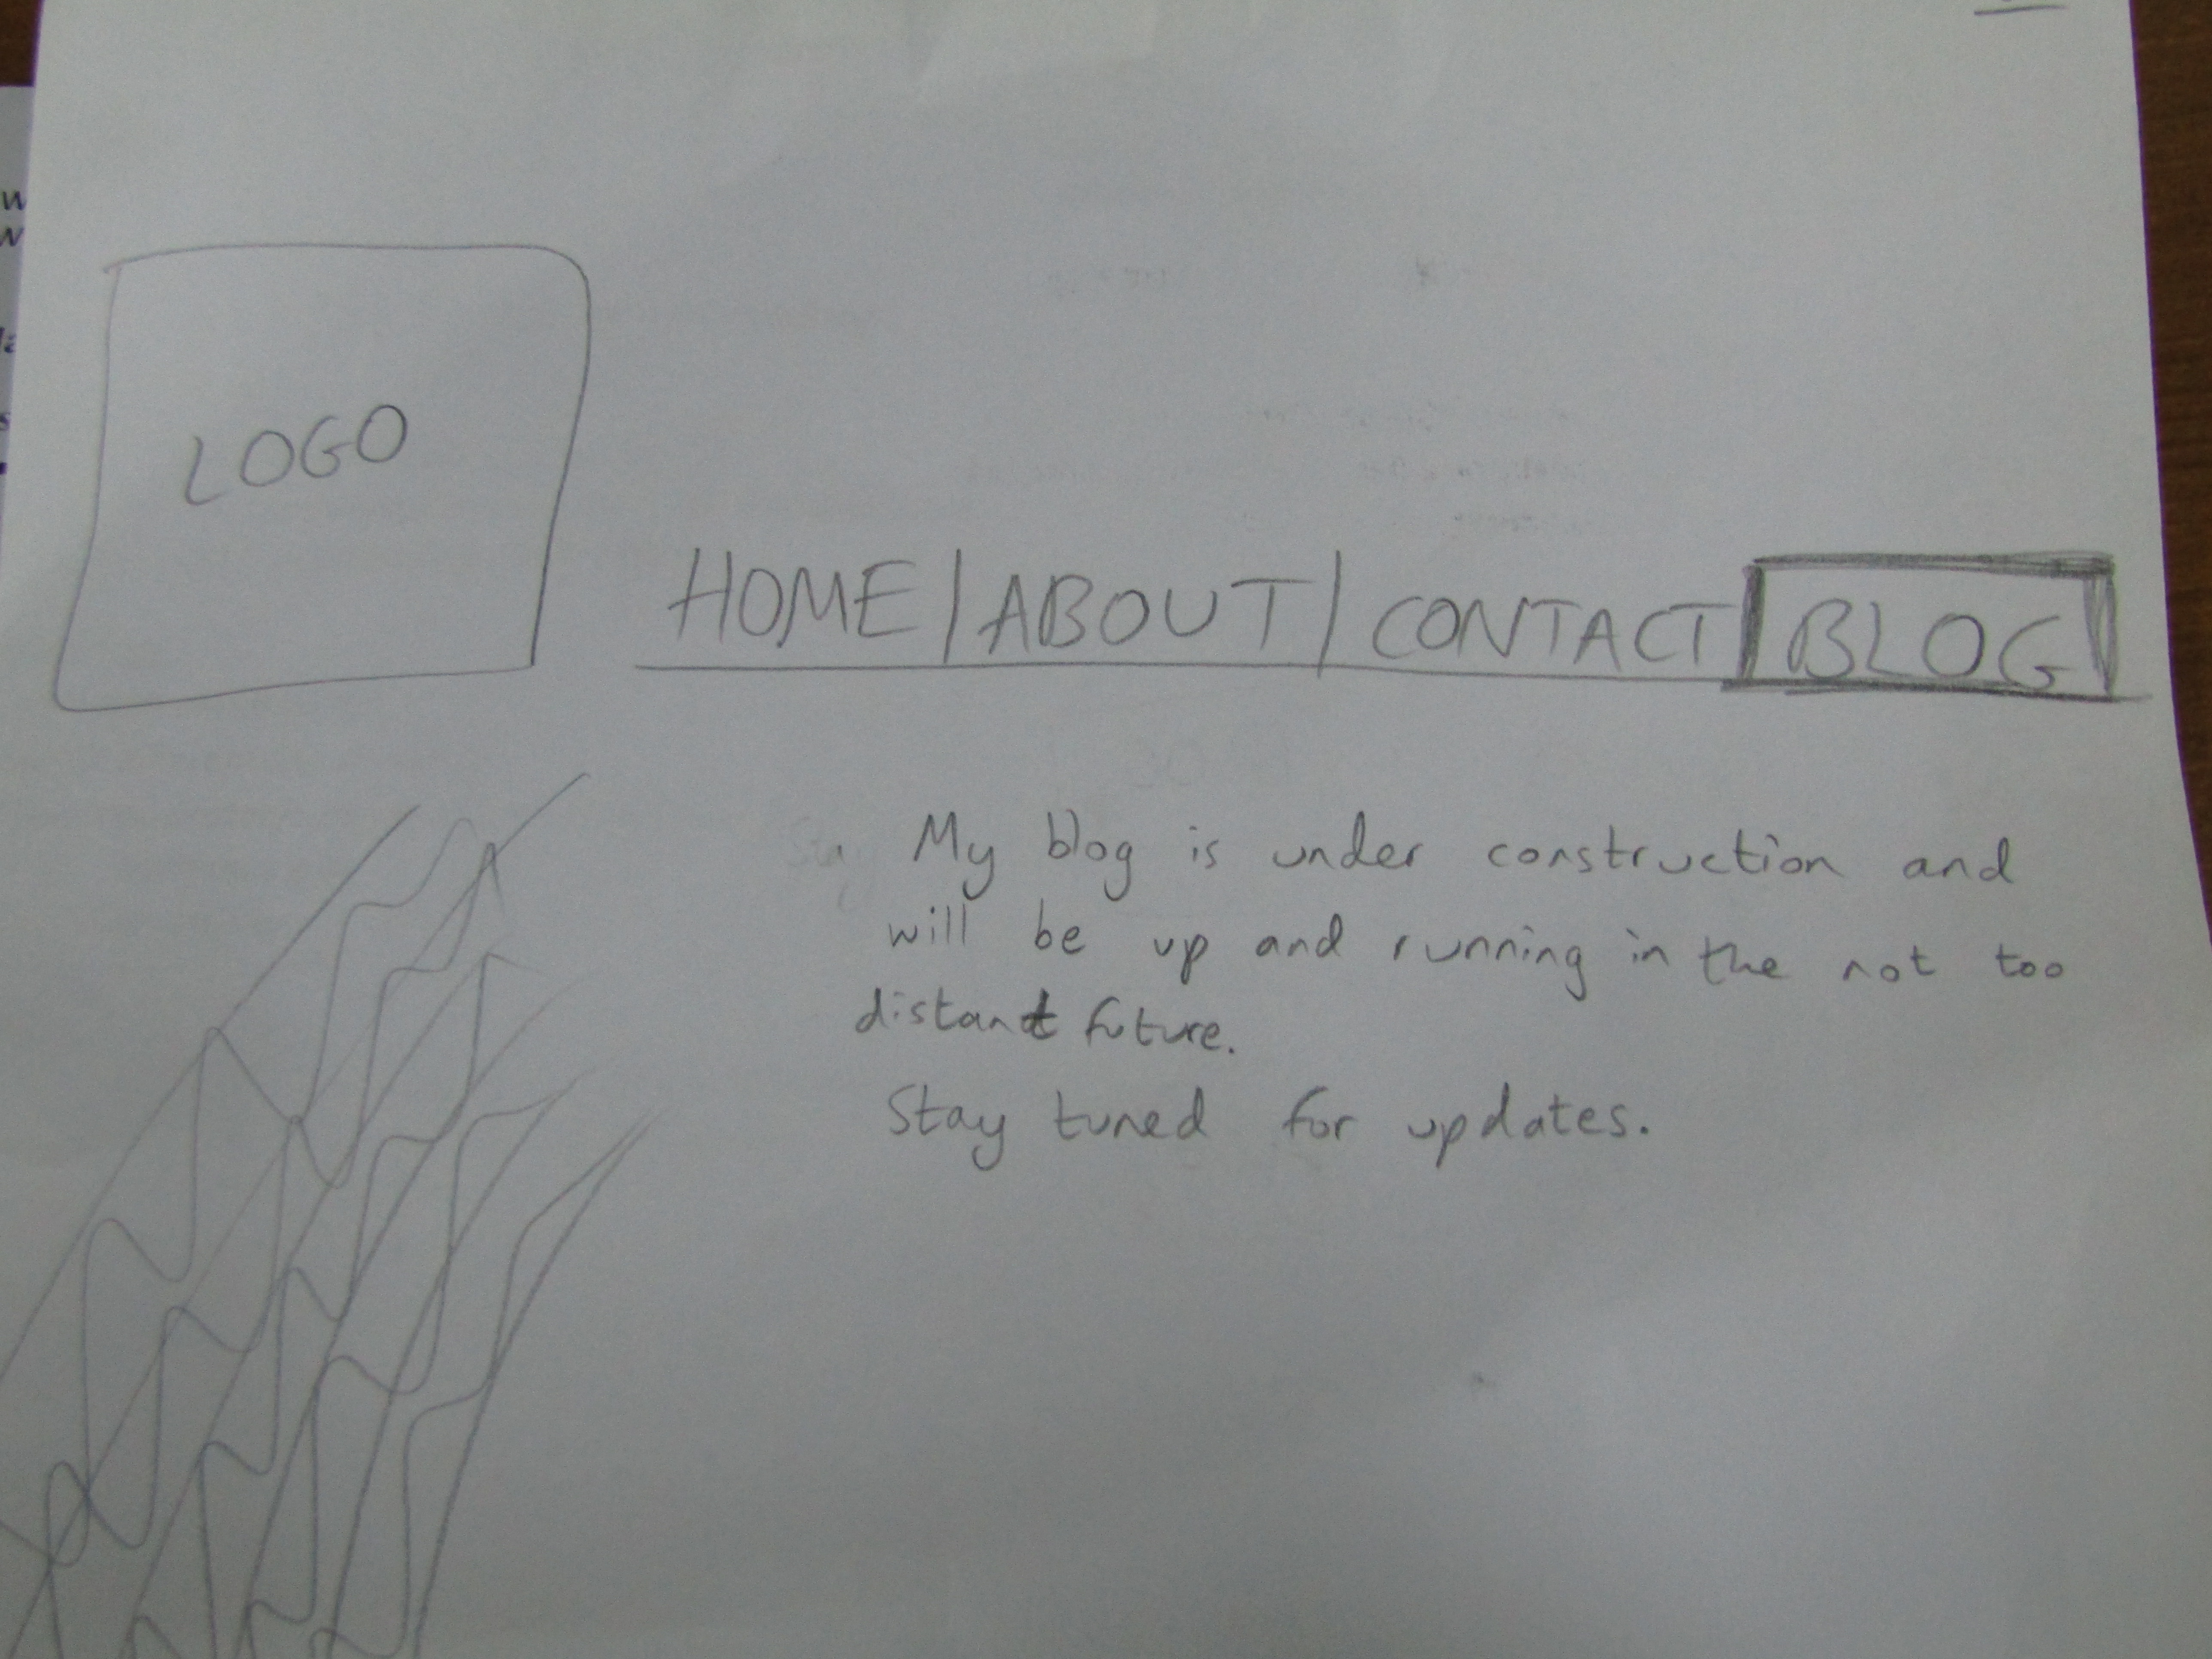 LOGO
HOME | ABOUT | CONTACT | BLOG
My blog is under construction and
will be up and running in the not too
distant future.
Stay tuned for updates.